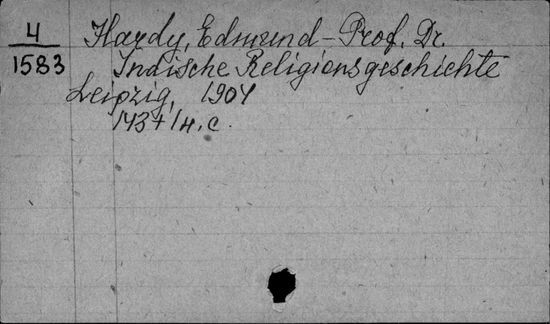 4
1583
Hardy, Edmund - Prof. Dr.
Indische Religionsgeschichte
Leipzig, 1904
143+1н. с.